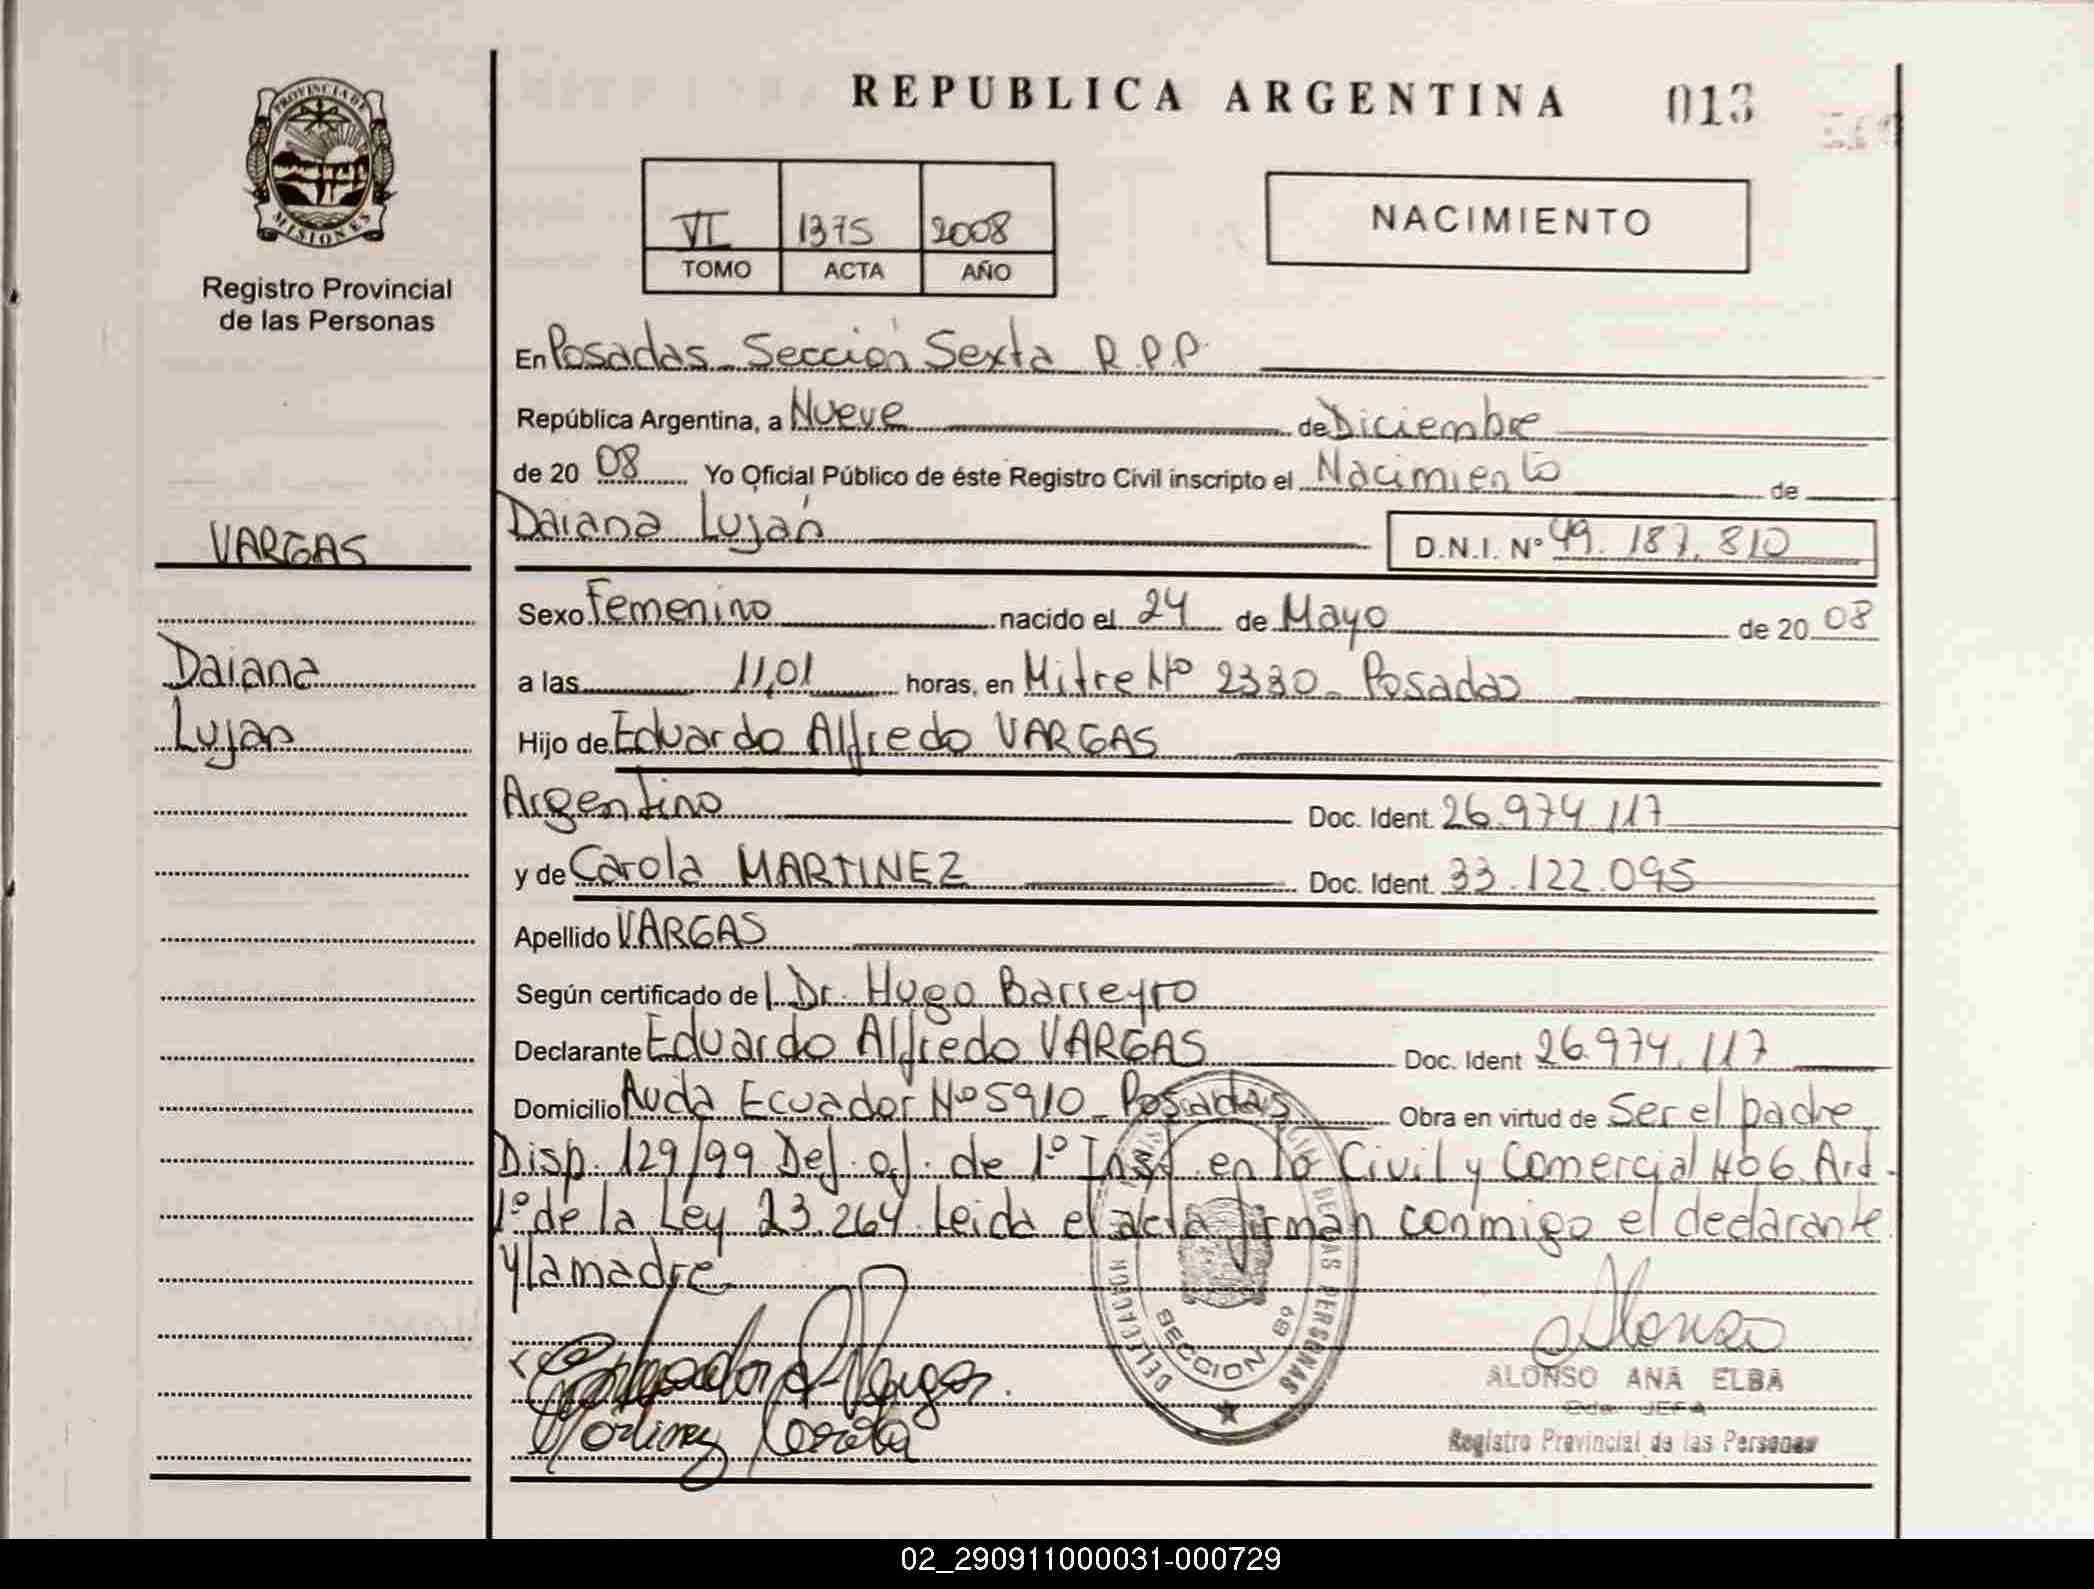 REPUBLICA ARGENTINA 013
PROVINCIA DE
MISIONES
Registro Provincial
de las Personas
VI 1375 2008
TOMO ACTA AÑO
NACIMIENTO
En Posadas Sección Sexta R.P.P.
República Argentina, a Nueve de Diciembre
de 20 08 Yo Oficial Público de éste Registro Civil inscripto el Nacimiento de
VARGAS
Daiana Luján D.N.I. Nº 49.187.810
Sexo Femenino nacido el 24 de Mayo de 20 08
Daiana
a las 11,01 horas, en Mitre Nº 2330 Posadas
Lujan
Hijo de Eduardo Alfredo VARGAS
Argentino Doc. Ident. 26.974.117
y de Carola MARTINEZ Doc. Ident. 33.122.095
Apellido VARGAS
Según certificado de l Dr. Hugo Barreyro
Declarante Eduardo Alfredo VARGAS Doc. Ident 26.974.117
Domicilio Avda Ecuador Nº 5910 Posadas Obra en virtud de Ser el padre
Disp. 129/99 Def. of. de 1º Inst en lo Civil y Comercial Nº 6 Art.
1º de la Ley 23.264. Leida el acta firman conmigo el declarante
y la madre.
Vargas
Martinez Carola
DE LAS PERSONAS
SECCION 6º
Alonso
ALONSO ANA ELBA
JEFA
Registro Provincial de las Personas
02_290911000031-000729